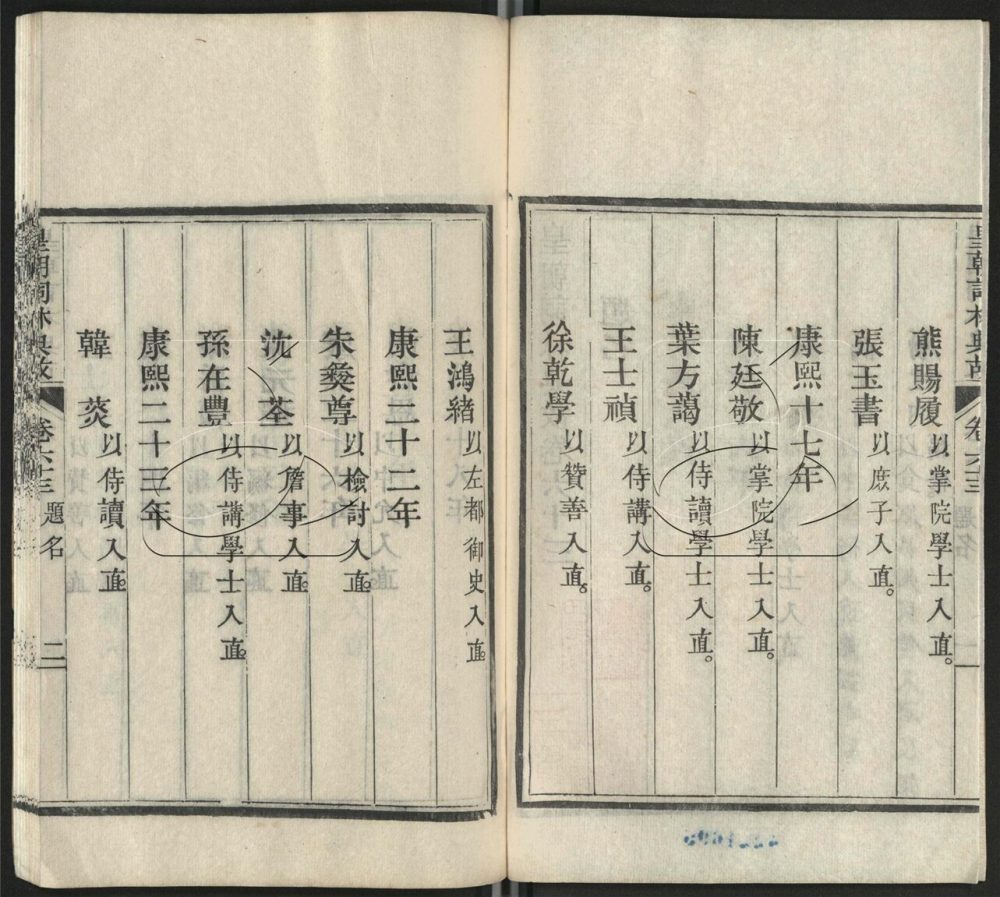 皇朝詞林典故 卷六十三 題名 一
熊賜履以掌院學士入直。
張玉書以庶子入直。
康熙十七年
陳廷敬以掌院學士入直。
葉方藹以侍讀學士入直。
王士禎以侍講入直。
徐乾學以贊善入直。
王鴻緒以左都御史入直。
康熙二十二年
朱彝尊以檢討入直。
沈荃以詹事入直。
孫在豐以侍講學士入直。
康熙二十三年
韓菼以侍讀入直。
皇朝詞林典故 卷六十三 題名 二